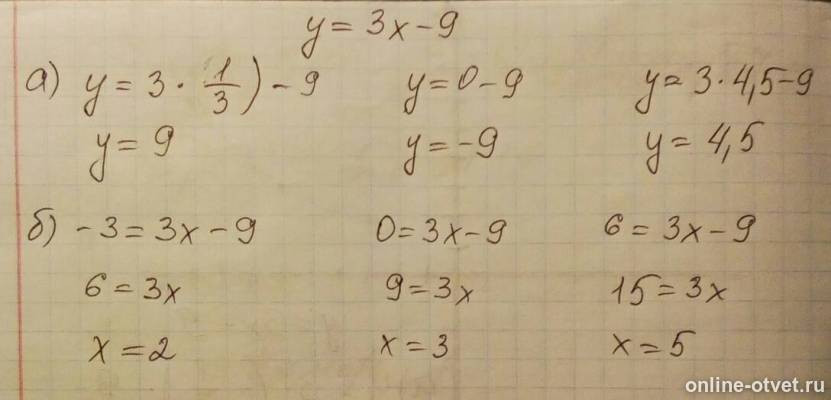 y = 3x - 9
а) y = 3 · 1/3) - 9 y = 0 - 9 y = 3 · 4,5 - 9
y = 9 y = -9 y = 4,5
б) -3 = 3x - 9 0 = 3x - 9 6 = 3x - 9
6 = 3x 9 = 3x 15 = 3x
x = 2 x = 3 x = 5
online-otvet.ru